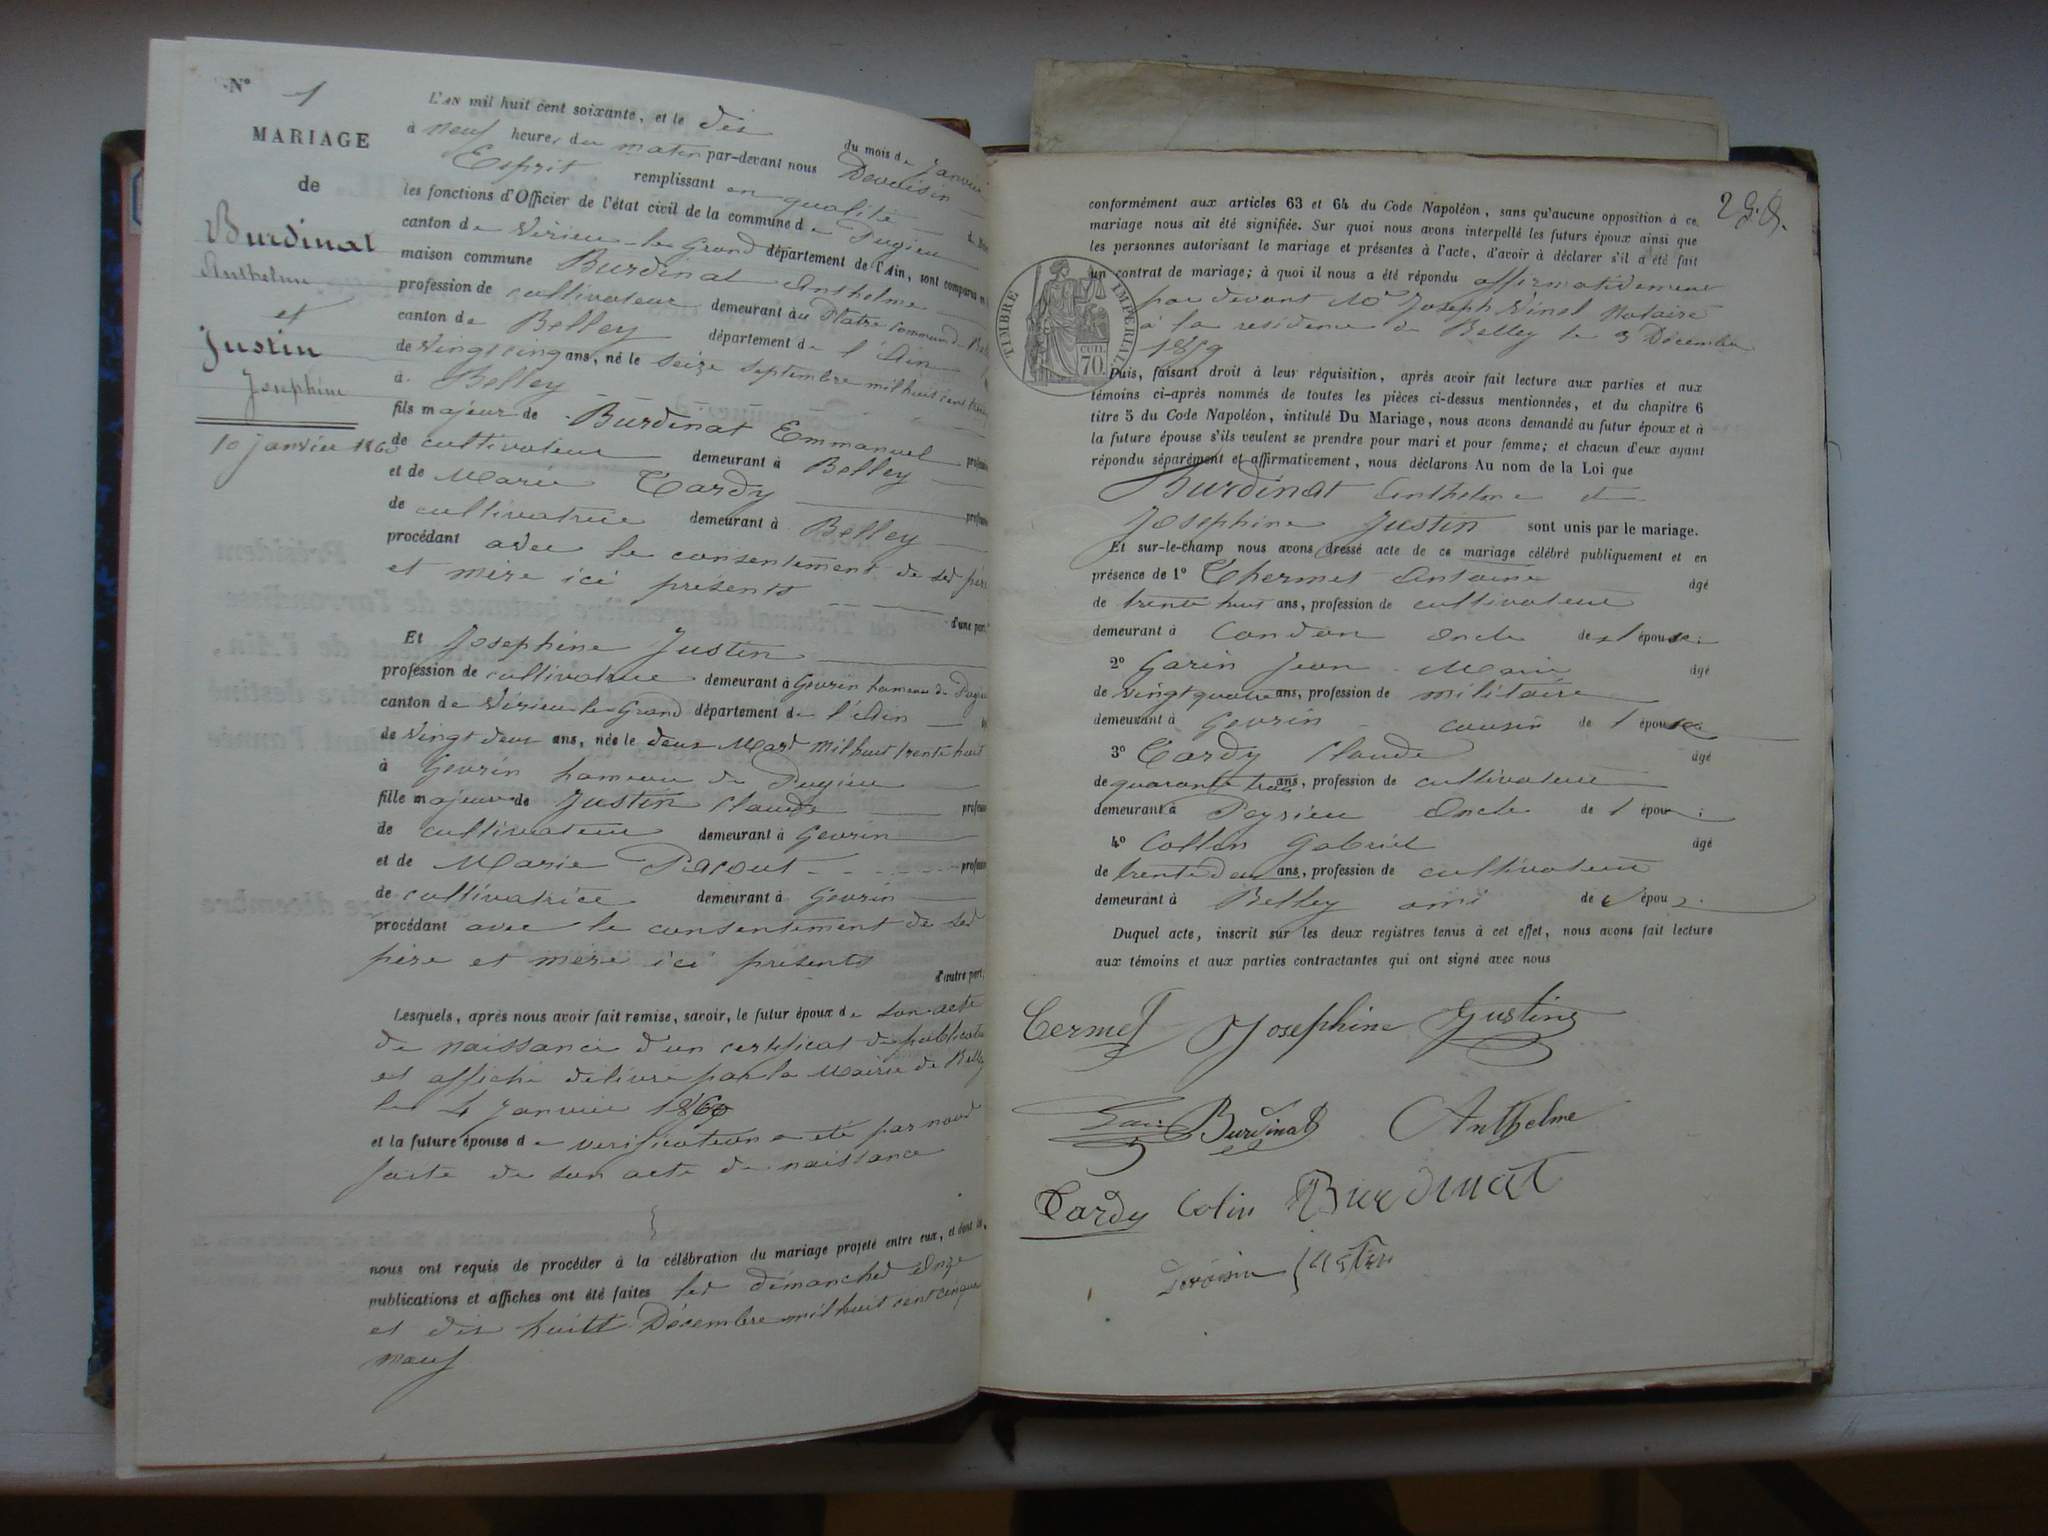 N° 1
MARIAGE
de
Burdinat
Anthelme
et
Justin
Josephine
10 Janvier 1860
L'AN mil huit cent soixante, et le dix du mois de Janvier
à neuf heures du matin par-devant nous Devoisin
Esprit remplissant en qualité
les fonctions d'Officier de l'état civil de la commune de Pugieu
canton de Virieu-le-Grand département de l'Ain, sont comparus
maison commune Burdinat Anthelme
profession de cultivateur demeurant au Platre commune de
canton de Belley département de l'Ain
de vingt cinq ans, né le seize septembre mil huit cent
à Belley
fils majeur de Burdinat Emmanuel
de cultivateur demeurant à Belley
et de Marie Tardy
de cultivatrice demeurant à Belley
procédant avec le consentement de ses père
et mère ici présents
d'une part,
Et Josephine Justin
profession de cultivatrice demeurant à Gevrin hameau de
canton de Virieu le Grand département de l'Ain
de vingt deux ans, née le deux Mars mil huit trente huit
à Gevrin hameau de Pugieu
fille majeure de Justin Claude
de cultivateur demeurant à Gevrin
et de Marie Pacout
de cultivatrice demeurant à Gevrin
procédant avec le consentement de ses
père et mère ici présents
d'autre part,
Lesquels, après nous avoir fait remise, savoir, le futur époux de son acte
de naissance d'un certificat de
et affiche délivré par la Mairie de Belley
le 4 Janvier 1860
et la future épouse de verification a été par nous
faite de son acte de naissance
nous ont requis de procéder à la célébration du mariage projeté entre eux, et dont les
publications et affiches ont été faites les dimanches onze
et dix huitt Décembre mil huit cent cinquante
neuf
2
conformément aux articles 63 et 64 du Code Napoléon, sans qu'aucune opposition à ce
mariage nous ait été signifiée. Sur quoi nous avons interpellé les futurs époux ainsi que
les personnes autorisant le mariage et présentes à l'acte, d'avoir à déclarer s'il a été fait
un contrat de mariage; à quoi il nous a été répondu affirmativement
par devant Me Joseph Vinel Notaire
à la residence de Belley le 3 Décembre
1859
TIMBRE IMPÉRIAL
CUIL.
70.
Puis, faisant droit à leur réquisition, après avoir fait lecture aux parties et aux
témoins ci-après nommés de toutes les pièces ci-dessus mentionnées, et du chapitre 6
titre 5 du Code Napoléon, intitulé Du Mariage, nous avons demandé au futur époux et à
la future épouse s'ils veulent se prendre pour mari et pour femme; et chacun d'eux ayant
répondu séparément et affirmativement, nous déclarons Au nom de la Loi que
Burdinat Anthelme et
Josephine Justin sont unis par le mariage.
Et sur-le-champ nous avons dressé acte de ce mariage célébré publiquement et en
présence de 1° Thermet Antoine âgé
de trente huit ans, profession de cultivateur
demeurant à Condon oncle de l'épouse;
2° Garin Jean Marie âgé
de vingt quatre ans, profession de militaire
demeurant à Gevrin cousin de l'épouse;
3° Tardy Claude âgé
de quarante trois ans, profession de cultivateur
demeurant à Peyrieu oncle de l'époux;
4° Collin Gabriel âgé
de trente deux ans, profession de cultivateur
demeurant à Belley ami de l'époux.
Duquel acte, inscrit sur les deux registres tenus à cet effet, nous avons fait lecture
aux témoins et aux parties contractantes qui ont signé avec nous
Cermet Josephine Justine
Burdinat Anthelme
Tardy Colin Burdinat
Devoisin Justin